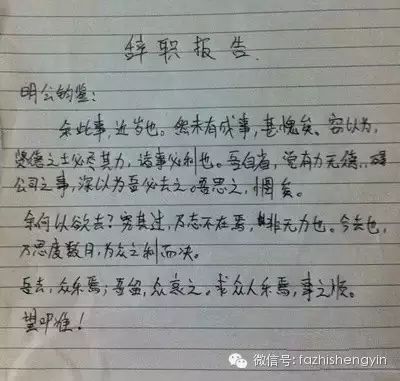 辞职报告
明公钧鉴:
余此事,近岁也。然未有成事,甚愧矣。窃以为,
贤德之士必尽其力,诸事必利也。吾自省,觉有力无德,
公司之事,深以为吾必去之。吾思之,惘矣。
余何以欲去?究其过,乃志不在焉,非无力也。今去也,
乃思度数月,为众之利而决。
吾去,众乐焉;吾留,众哀之。求众人乐焉,事之顺。
望叩准!
微信号: fazhishengyin